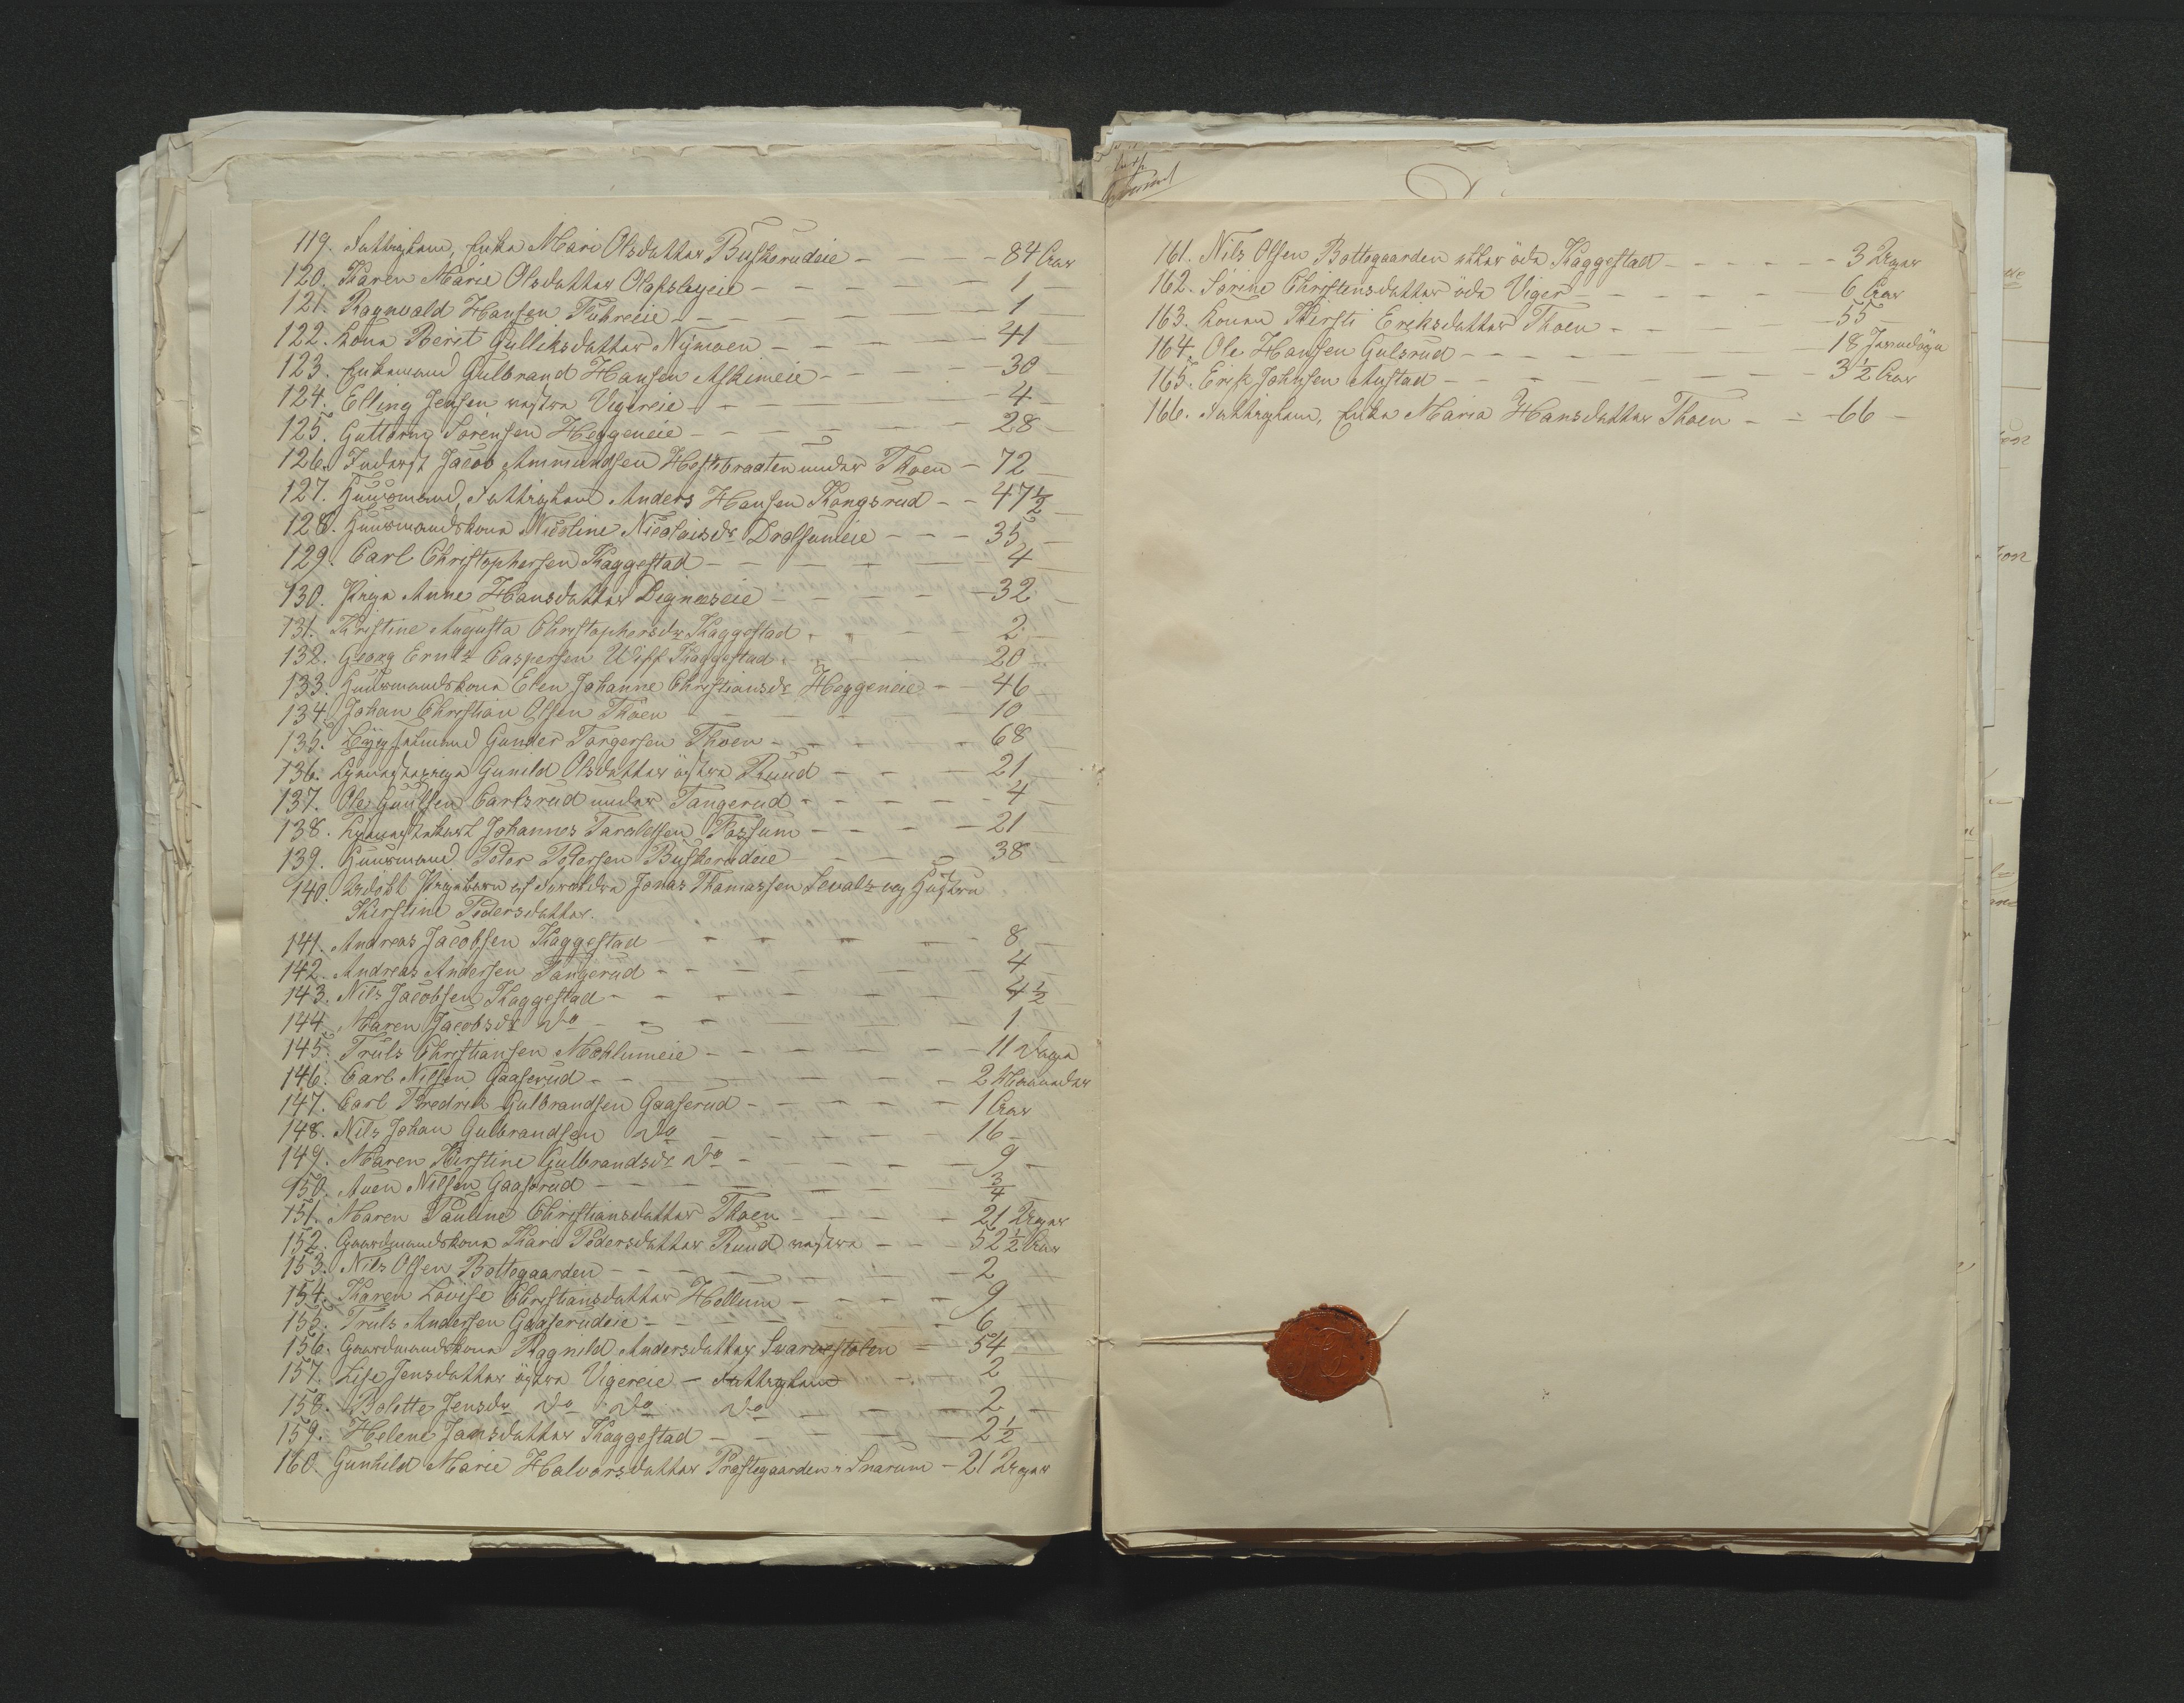 119. Fattiglem, Enke Mari Olsdatter Buskerudeie - - - 84 Aar
120. Karen Marie Olsdatter - - - 1 -
121. Ragnvald Hansen - - - 1 -
122. Kone Berit Gulliksdatter Nymoen - - - 41 -
123. Enkemand Gulbrand Hansen Askimeie - - - 30 -
124. Elling Jensen vestre Vigereie - - - 4 -
125. Guttorm Sørensen Heggeneie - - - 28 -
126. Inderst Jacob Ammundsen under Thoen - 72 -
127. Huusmand, Fattiglem Anders Hansen Kongsrud - - 47 1/2 -
128. Huusmandskone Nicoline Nicolaisdr Dralsumeie - - - 35 -
129. Carl Christophersen Kaggestad - - - 4 -
130. Pige Anne Hansdatter Digneseie - - - 32 -
131. Kristine Augusta Christophersdr Kaggestad - - - 2 -
132. Georg Ernst Caspersen Kaggestad - - - 20 -
133. Huusmandskone Elen Johanne Christiansdr Heggeneie - - 46 -
134. Johan Christian Olsen Thoen - - - 10 -
135. Gunder Torgersen Thoen - - - 68 -
136. Tjenestepige Gunild Olsdatter østre Ruud - - - 21 -
137. Ole Paulsen Carlsrud under Tangerud - - - 4 -
138. Tjenestekarl Johannes Taraldsen Fossum - - - 21 -
139. Huusmand Peter Pedersen Buskerudeie - - - 38 -
140. Udøbt Pigebarn af Forældre Jonas Thomassen og Hustru
Kirstine Pedersdatter.
141. Andreas Jacobsen Kaggestad - - - 8 -
142. Andreas Andersen Tangerud - - - 4 -
143. Nils Jacobsen Kaggestad - - - 4 1/2 -
144. Maren Jacobsdr do - - - 1 -
145. Truls Christiansen Moklumeie - - - 11 Dage
146. Carl Nilsen Gaaserud - - - 2 Maaneder
147. Carl Fredrik Gulbrandsen Gaaserud - - - 1 Aar
148. Nils Johan Gulbrandsen do - - - 16 -
149. Maren Kirstine Gulbrandsdr do - - - 9 -
150. Auen Nilsen Gaaserud - - - 3/4 -
151. Maren Pauline Christiansdatter Thoen - - - 21 Uger
152. Gaardmandskone Kari Pedersdatter Ruud vestre - - - 52 1/2 Aar
153. Nils Olsen Bottegaarden - - - 2 -
154. Karen Lovise Christiansdatter Hollum - - - 9 -
155. Truls Andersen Gaaserudeie - - - 6 -
156. Gaardmandskone Ragnild Andersdatter Svarvestolen - - 54 -
157. Lise Jensdatter østre Vigereie - Fattiglem - - 2 -
158. Bolette Jensdr do do do - - - 2 -
159. Helene Jansdatter Kaggestad - - - 2 1/2 -
160. Gunhild Marie Halvorsdatter Præstegaarden i Snarum - 21 Uger
161. Nils Olsen Bottegaarden øde Kaggestad - - - 3 Uger
162. Sørine Christensdatter øde Viger - - - 6 Aar
163. Konen Kirsti Eriksdatter Thoen - - - 55 -
164. Ole Hansen Gulsrud - - - 18
165. Erik Johnsen Austad - - - 3 1/2 Aar
166. Fattiglem, Enke Maria Hansdatter Thoen - - 66 -